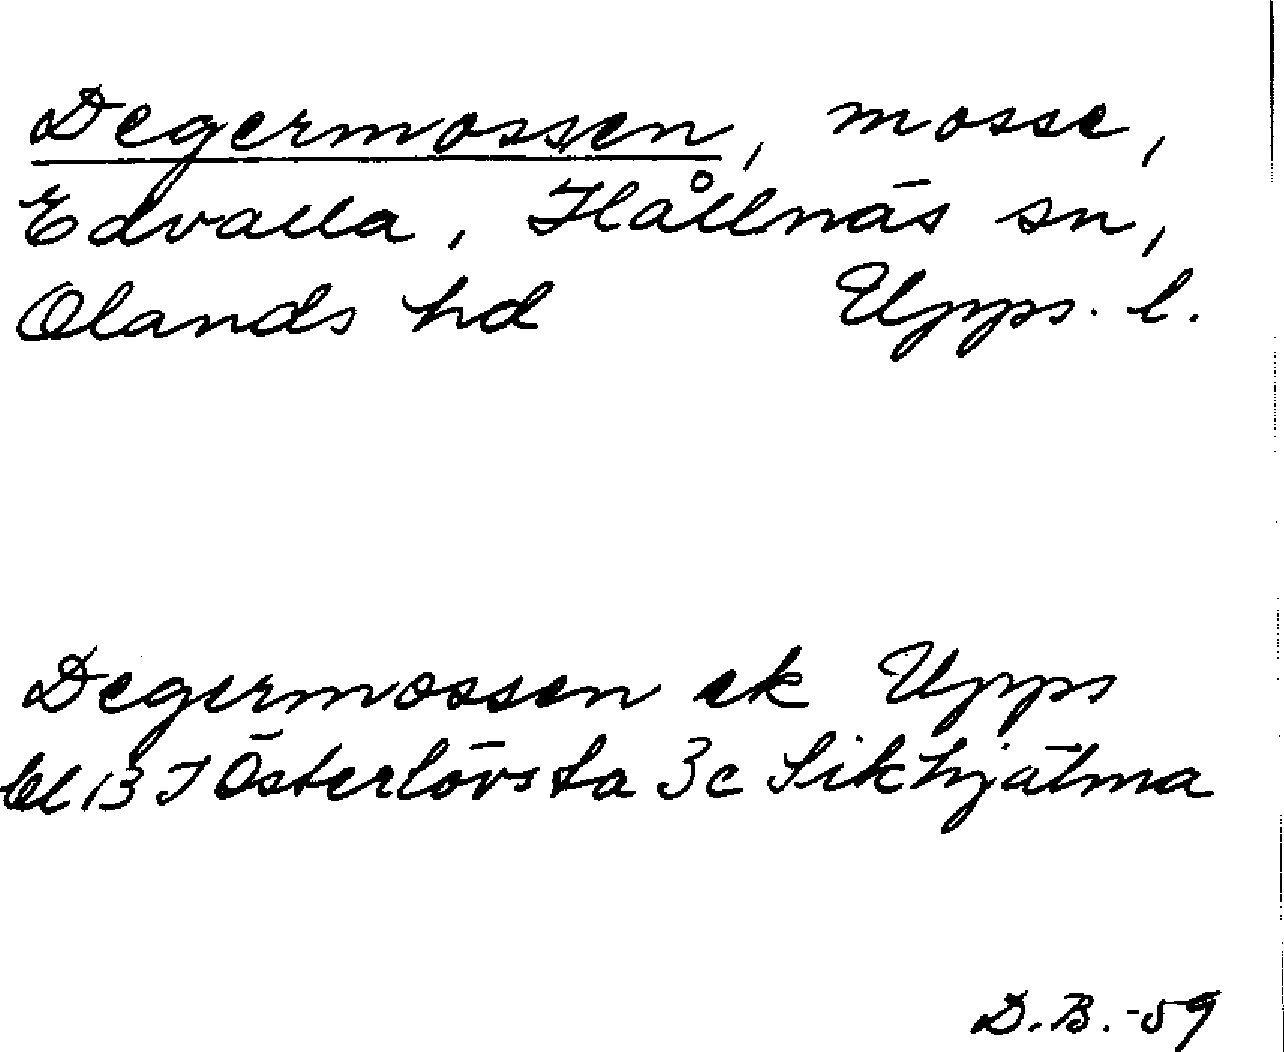 Degermossen, mosse,
Edvalla, Hållnäs sn,
Olands hd Upps. l.
Degermossen ek Upps
bl 13 I Österlövsta 3c Sikhjälma
D.B. -59